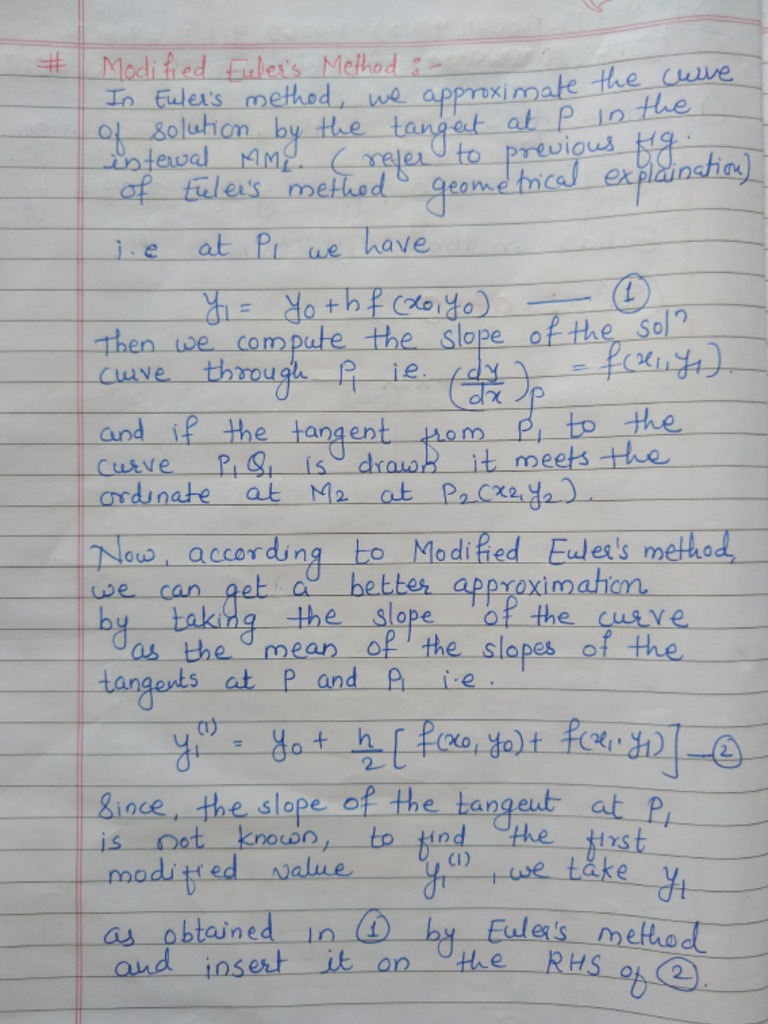 # Modified Euler's Method :-
In Euler's method, we approximate the curve
of solution by the tangent at P in the
interval MM1. (refer to previous fig.
of Euler's method geometrical explaination)
i.e at P1 we have
y1 = y0 + h f (x0, y0) —— ①
Then we compute the slope of the solⁿ
curve through P1 ie. (dy/dx)p = f(x1, y1).
and if the tangent from P1 to the
curve P1 Q1 is drawn it meets the
ordinate at M2 at P2 (x2, y2).
Now, according to Modified Euler's method,
we can get a better approximation
by taking the slope of the curve
as the mean of the slopes of the
tangents at P and P1 i.e.
y1⁽¹⁾ = y0 + h/2 [ f(x0, y0) + f(x1, y1) ] — ②
Since, the slope of the tangent at P1
is not known, to find the first
modified value y1⁽¹⁾, we take y1
as obtained in ① by Euler's method
and insert it on the RHS of ②.